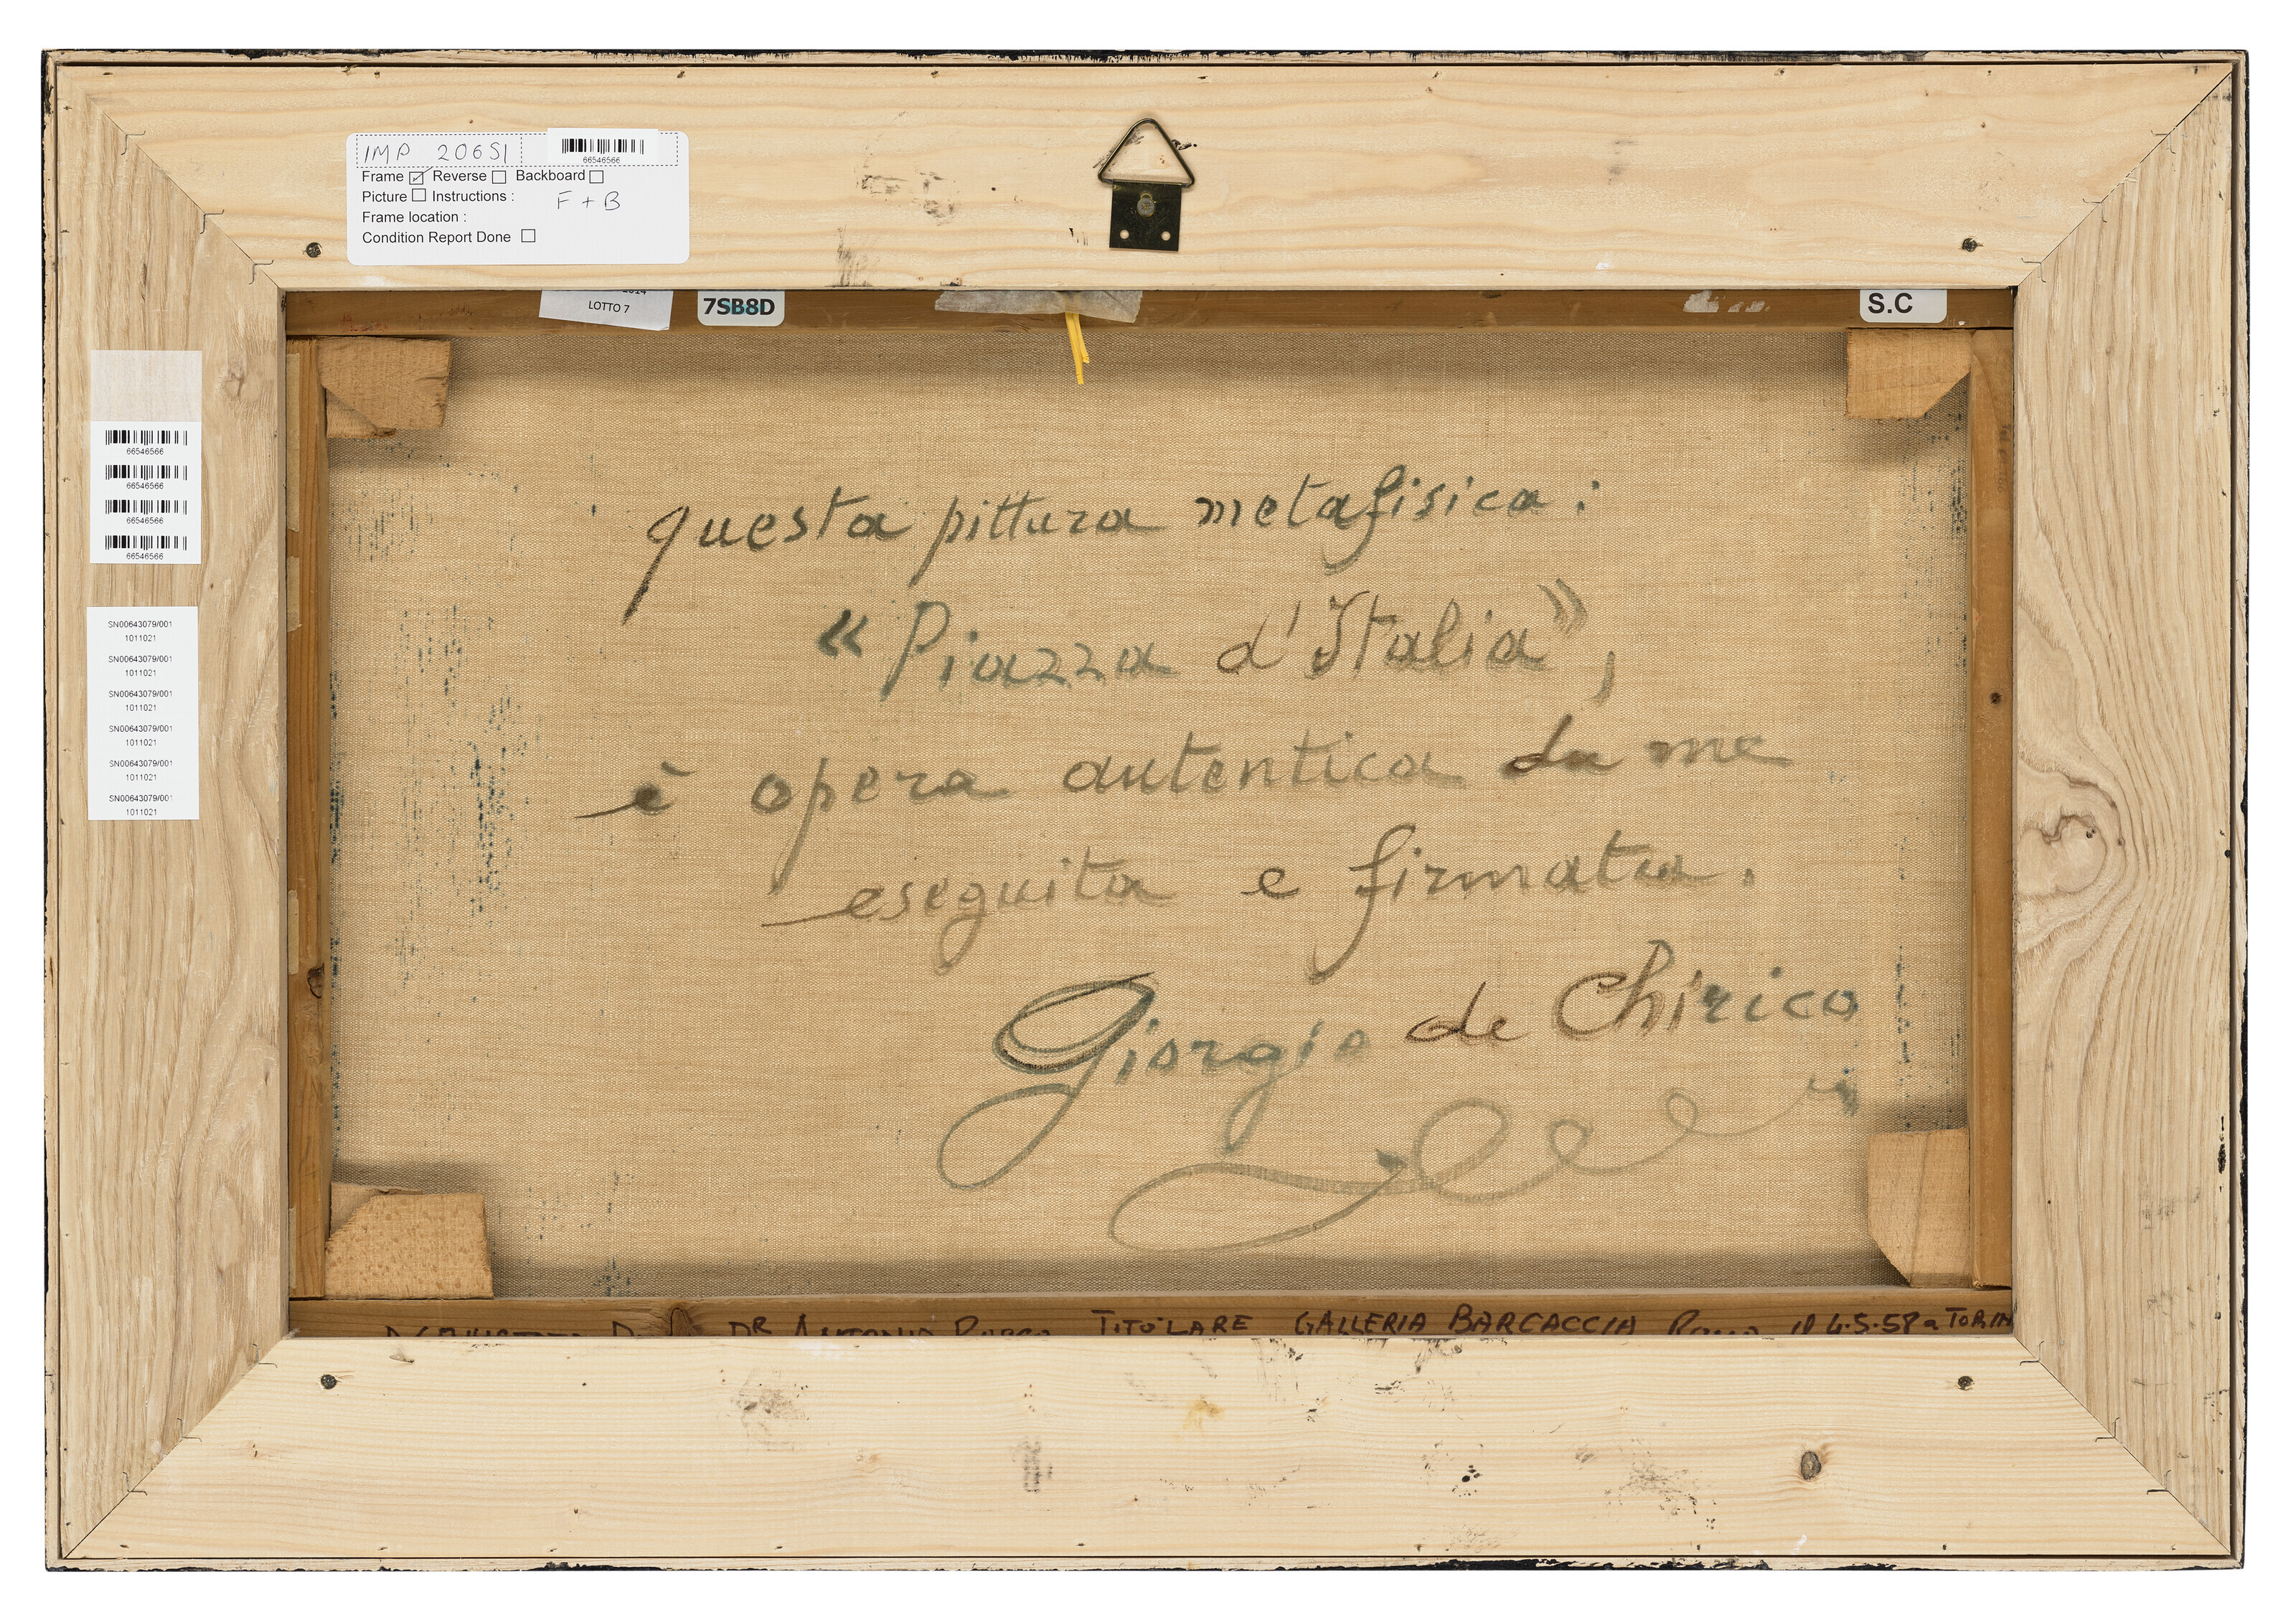 IMP 20651
66546566
Frame Reverse Backboard
Picture Instructions : F + B
Frame location :
Condition Report Done
LOTTO 7
7SB8D
S.C
66546566
66546566
66546566
66546566
SN00643079/001
1011021
SN00643079/001
1011021
SN00643079/001
1011021
SN00643079/001
1011021
SN00643079/001
1011021
SN00643079/001
1011021
questa pittura metafisica:
« Piazza d'Italia »,
è opera autentica da me
eseguita e firmata.
Giorgio de Chirico
DR ANTONIO TITOLARE GALLERIA BARCACCIA Roma 4.5.58 a TORIN